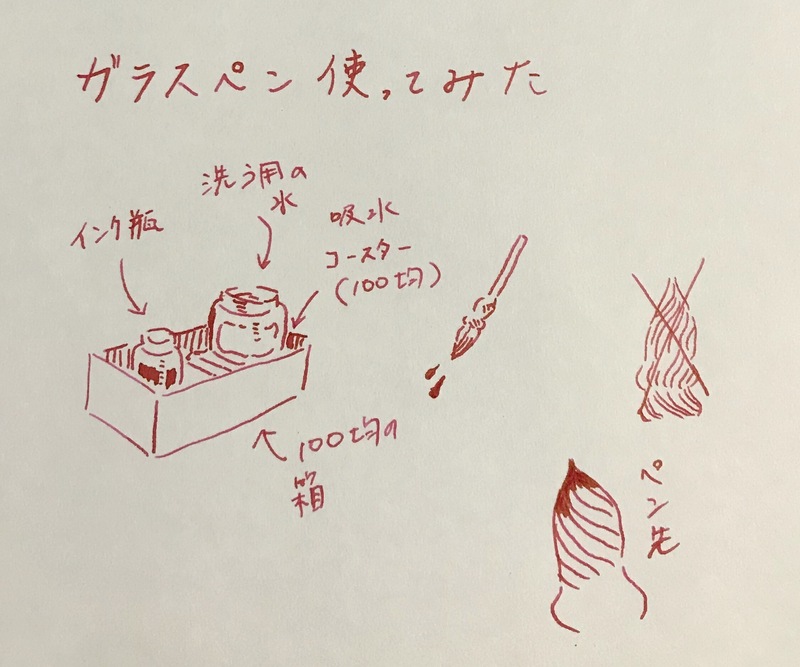 ガラスペン使ってみた
インク瓶
洗う用の
水
吸水
コースター
(100均)
100均の
箱
ペン先